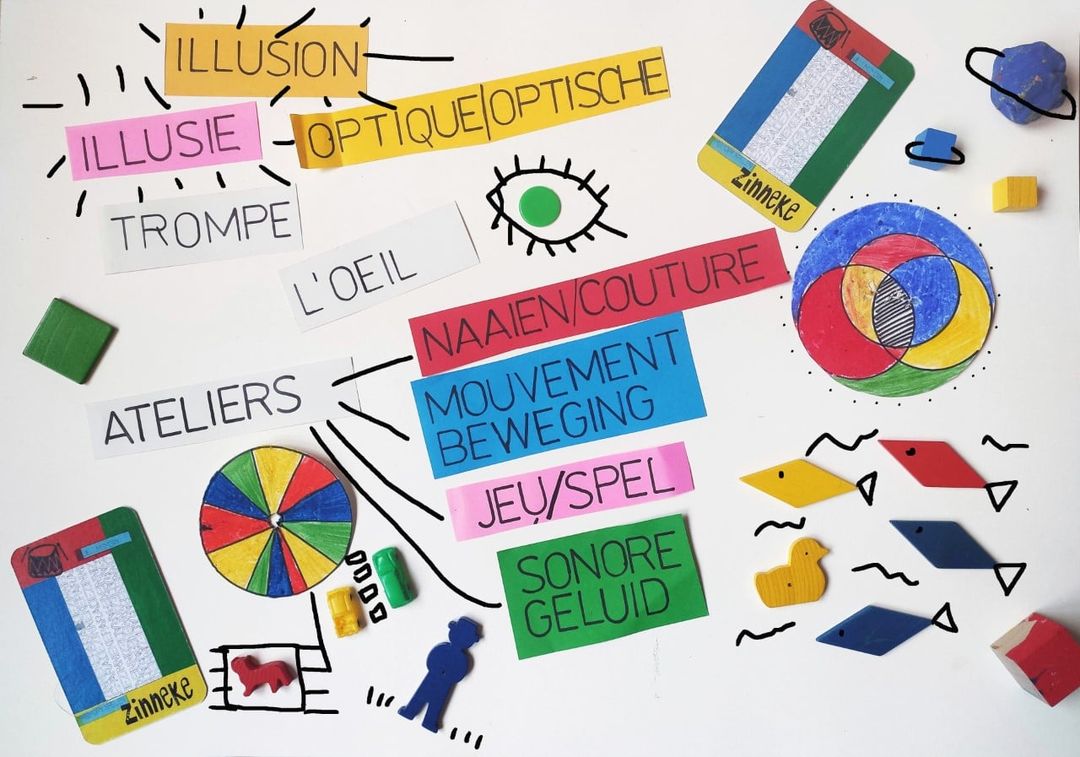 ILLUSION
ILLUSIE
OPTIQUE/OPTISCHE
TROMPE
L'OEIL
NAAIEN/COUTURE
ATELIERS
MOUVEMENT
BEWEGING
JEU/SPEL
SONORE
GELUID
zinneke
zinneke